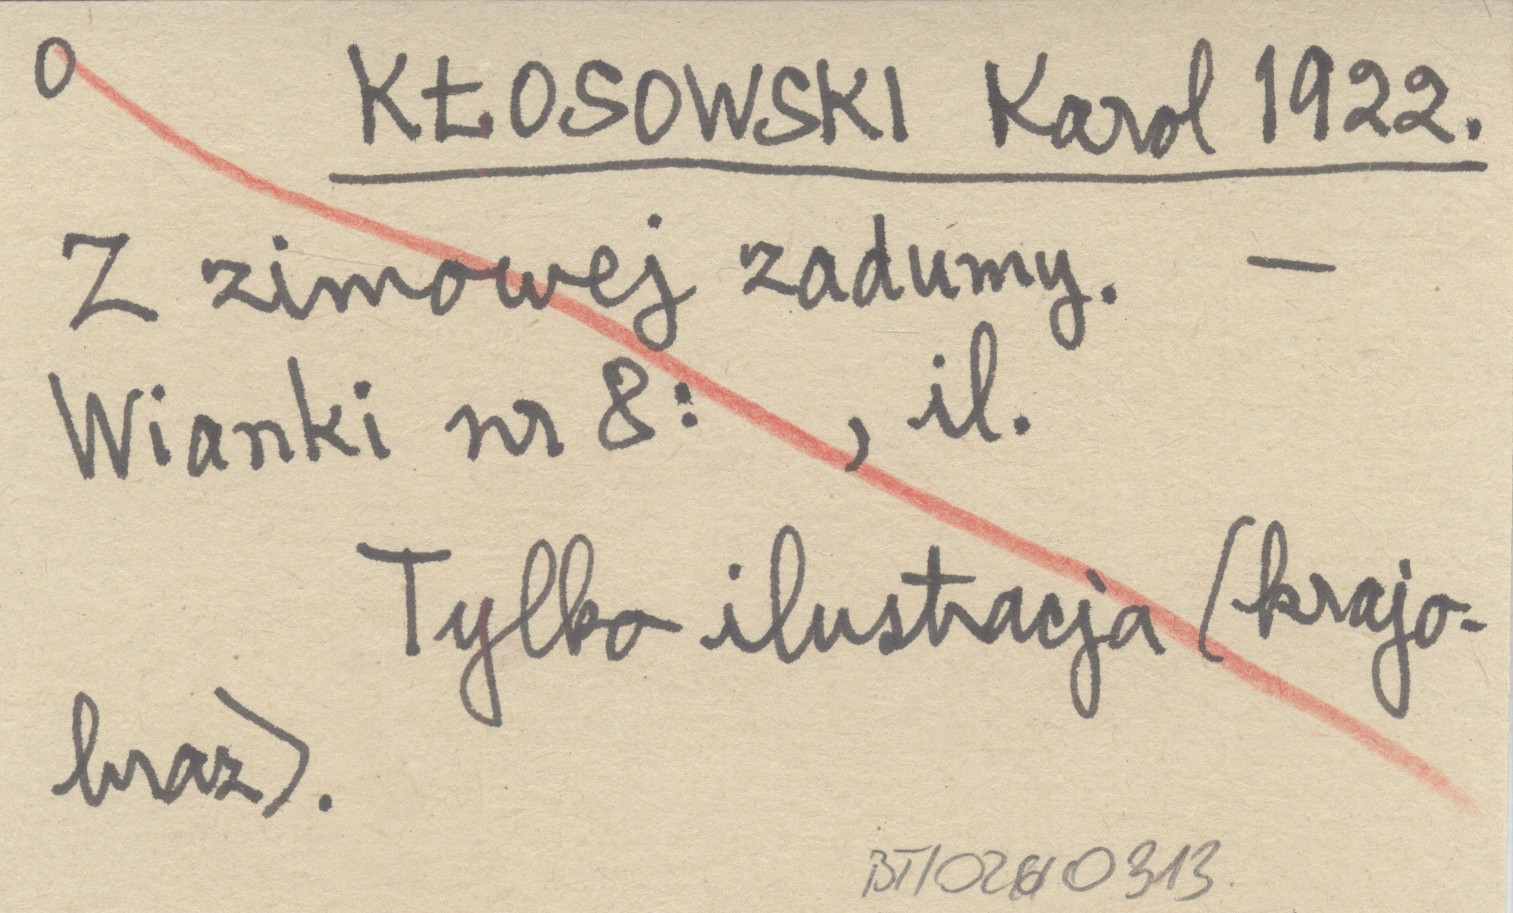 O KŁOSOWSKI Karol 1922.
Z zimowej zadumy. —
Wianki nr 8: , il.
Tylko ilustracja (krajo-
braz).